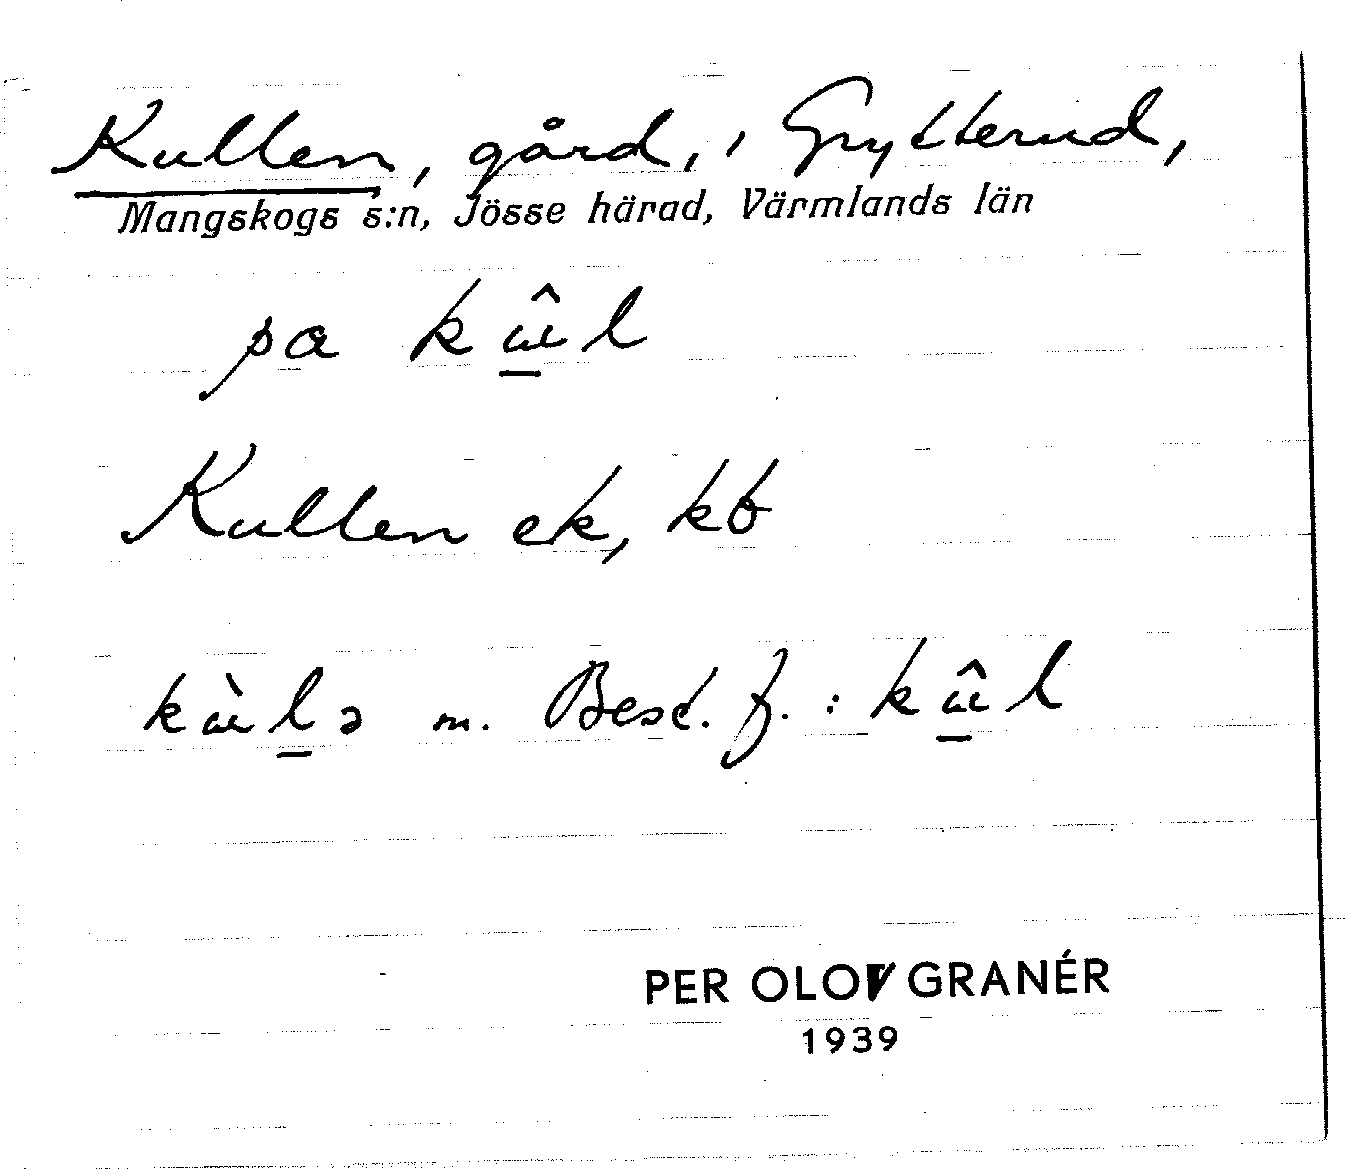 Kullen, gård, i Grytterud,
Mangskogs s:n, Jösse härad, Värmlands län
pa kɯ̲̂l
Kullen ek, kb
kɯ̀l̲ə m. Best. f. : kɯ̲̂l
PER OLOV GRANÉR
1939